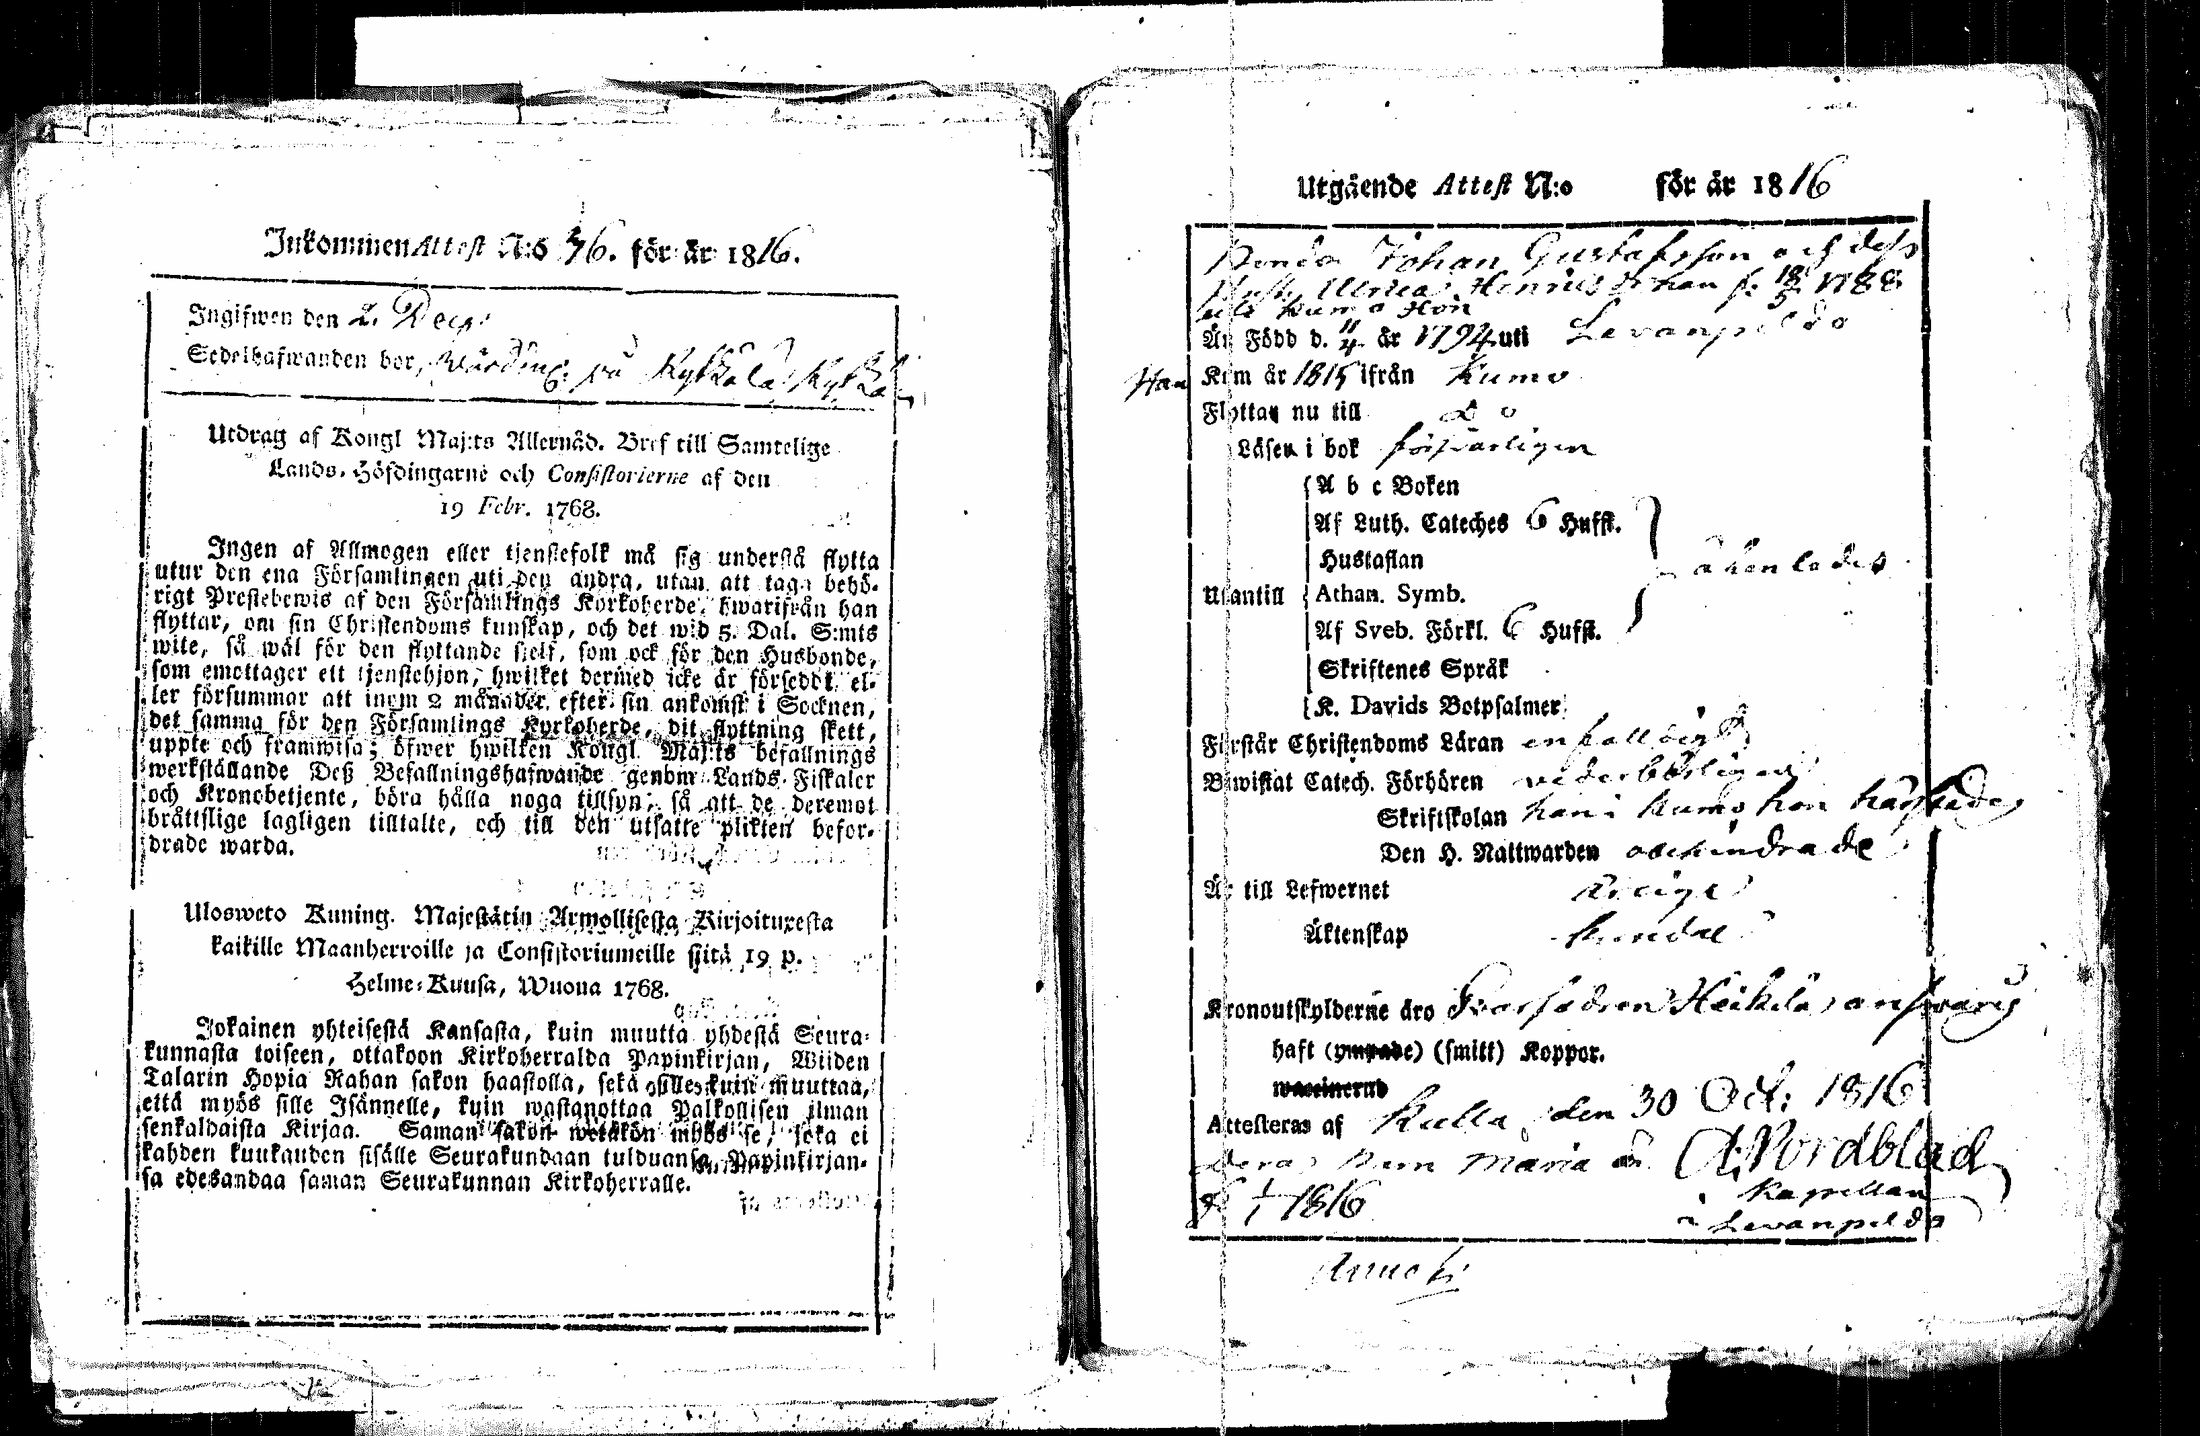 Inkommen Attest N:o 76. för år 1816.
Ingifwen den 2. Decb:
Sedelhafwanden bor, på Kyttälä
Utdrag af Kongl Maj:ts Allernåd. Bref till Samtelige
Lands-Höfdingarne och Consistorierne af den
19 Febr. 1768.
Ingen af Allmogen eller tjenstefolk må sig understå flytta
utur den ena Församlingen uti den andra, utan att taga behö-
rigt Prestebewis af den Församlings Kyrkoherde, hwarifrån han
flyttar, om sin Christendoms kunskap, och det wid 5. Dal. S:mts
wite, så wäl för den flyttande sjelf, som ock för den Husbonde,
som emottager ett tjenstehjon, hwilket dermed icke är förseddt, el-
ler försummar att inom 2 månader efter sin ankomst i Socknen,
det samma för den Församlings Kyrkoherde, dit flyttning skett,
uppte och framwisa; öfwer hwilken Kongl Maj:ts befallnings
werkställande Deß Befallningshafwande genom Lands-Fiskaler
och Kronobetjente, böra hålla noga tillsyn, så att de deremot
bråttslige lagligen tilltalte, och till den utsatte plikten befor-
drade warda.
Ulosweto Kuning. Majestätin Armollisesta Kirjoituxesta
kaikille Maanherroille ja Consistoriumeille siitä 19 p.
Helme-Kuusa, Wuona 1768.
Jokainen yhteisestä Kansasta, kuin muutta yhdestä Seura-
kunnasta toiseen, ottakoon Kirkoherralda Papinkirjan, Wiiden
Talarin Hopia Rahan sakon haastolla, sekä sille kuin muuttaa,
että myös sille Isännelle, kuin wastanottaa Palkollisen ilman
senkaldaista Kirjaa. Saman sakon wetäkön myös se, joka ei
kahden kuukauden sisälle Seurakundaan tulduansa Papinkirjan-
sa edesandaa saman Seurakunnan Kirkoherralle.
Utgående Attest N:o för år 1816
Bonden Johan Gustafsson och dess
Hust. Ulrica Henriesd: han f. 18/5 1788
uti Kumo Hon
Är Född d. 11/4 år 1794 uti Levanpeldo
Han Kom år 1815 ifrån Kumo
Flyttar nu till Do
Läser i bok försvarligen
A b c Boken
Af Luth. Cateches 6 Hufst.
Hustaflan
Utantill Athan. Symb.
Af Sveb. Förkl. 6 Hufst.
Skriftenes Språk
K. Davids Botpsalmer
Förstår Christendoms Läran enfalldigt
Biwistat Catech. Förhören vederbörligen
Skriftskolan han i Kumo hon härstädes
Den H. Nattwarden obehindrade
Är till Lefwernet
Äktenskap
Kronoutskylderne äro Svarsadren Heikkilä answarig
haft (ympade) (smitt) Koppor.
waccinerad
Attesteras af Kulla den 30 Oct: 1816
Deras barn Maria är A. Nordblad
f 1/1 1816 Kapellan
i Levanpeldo